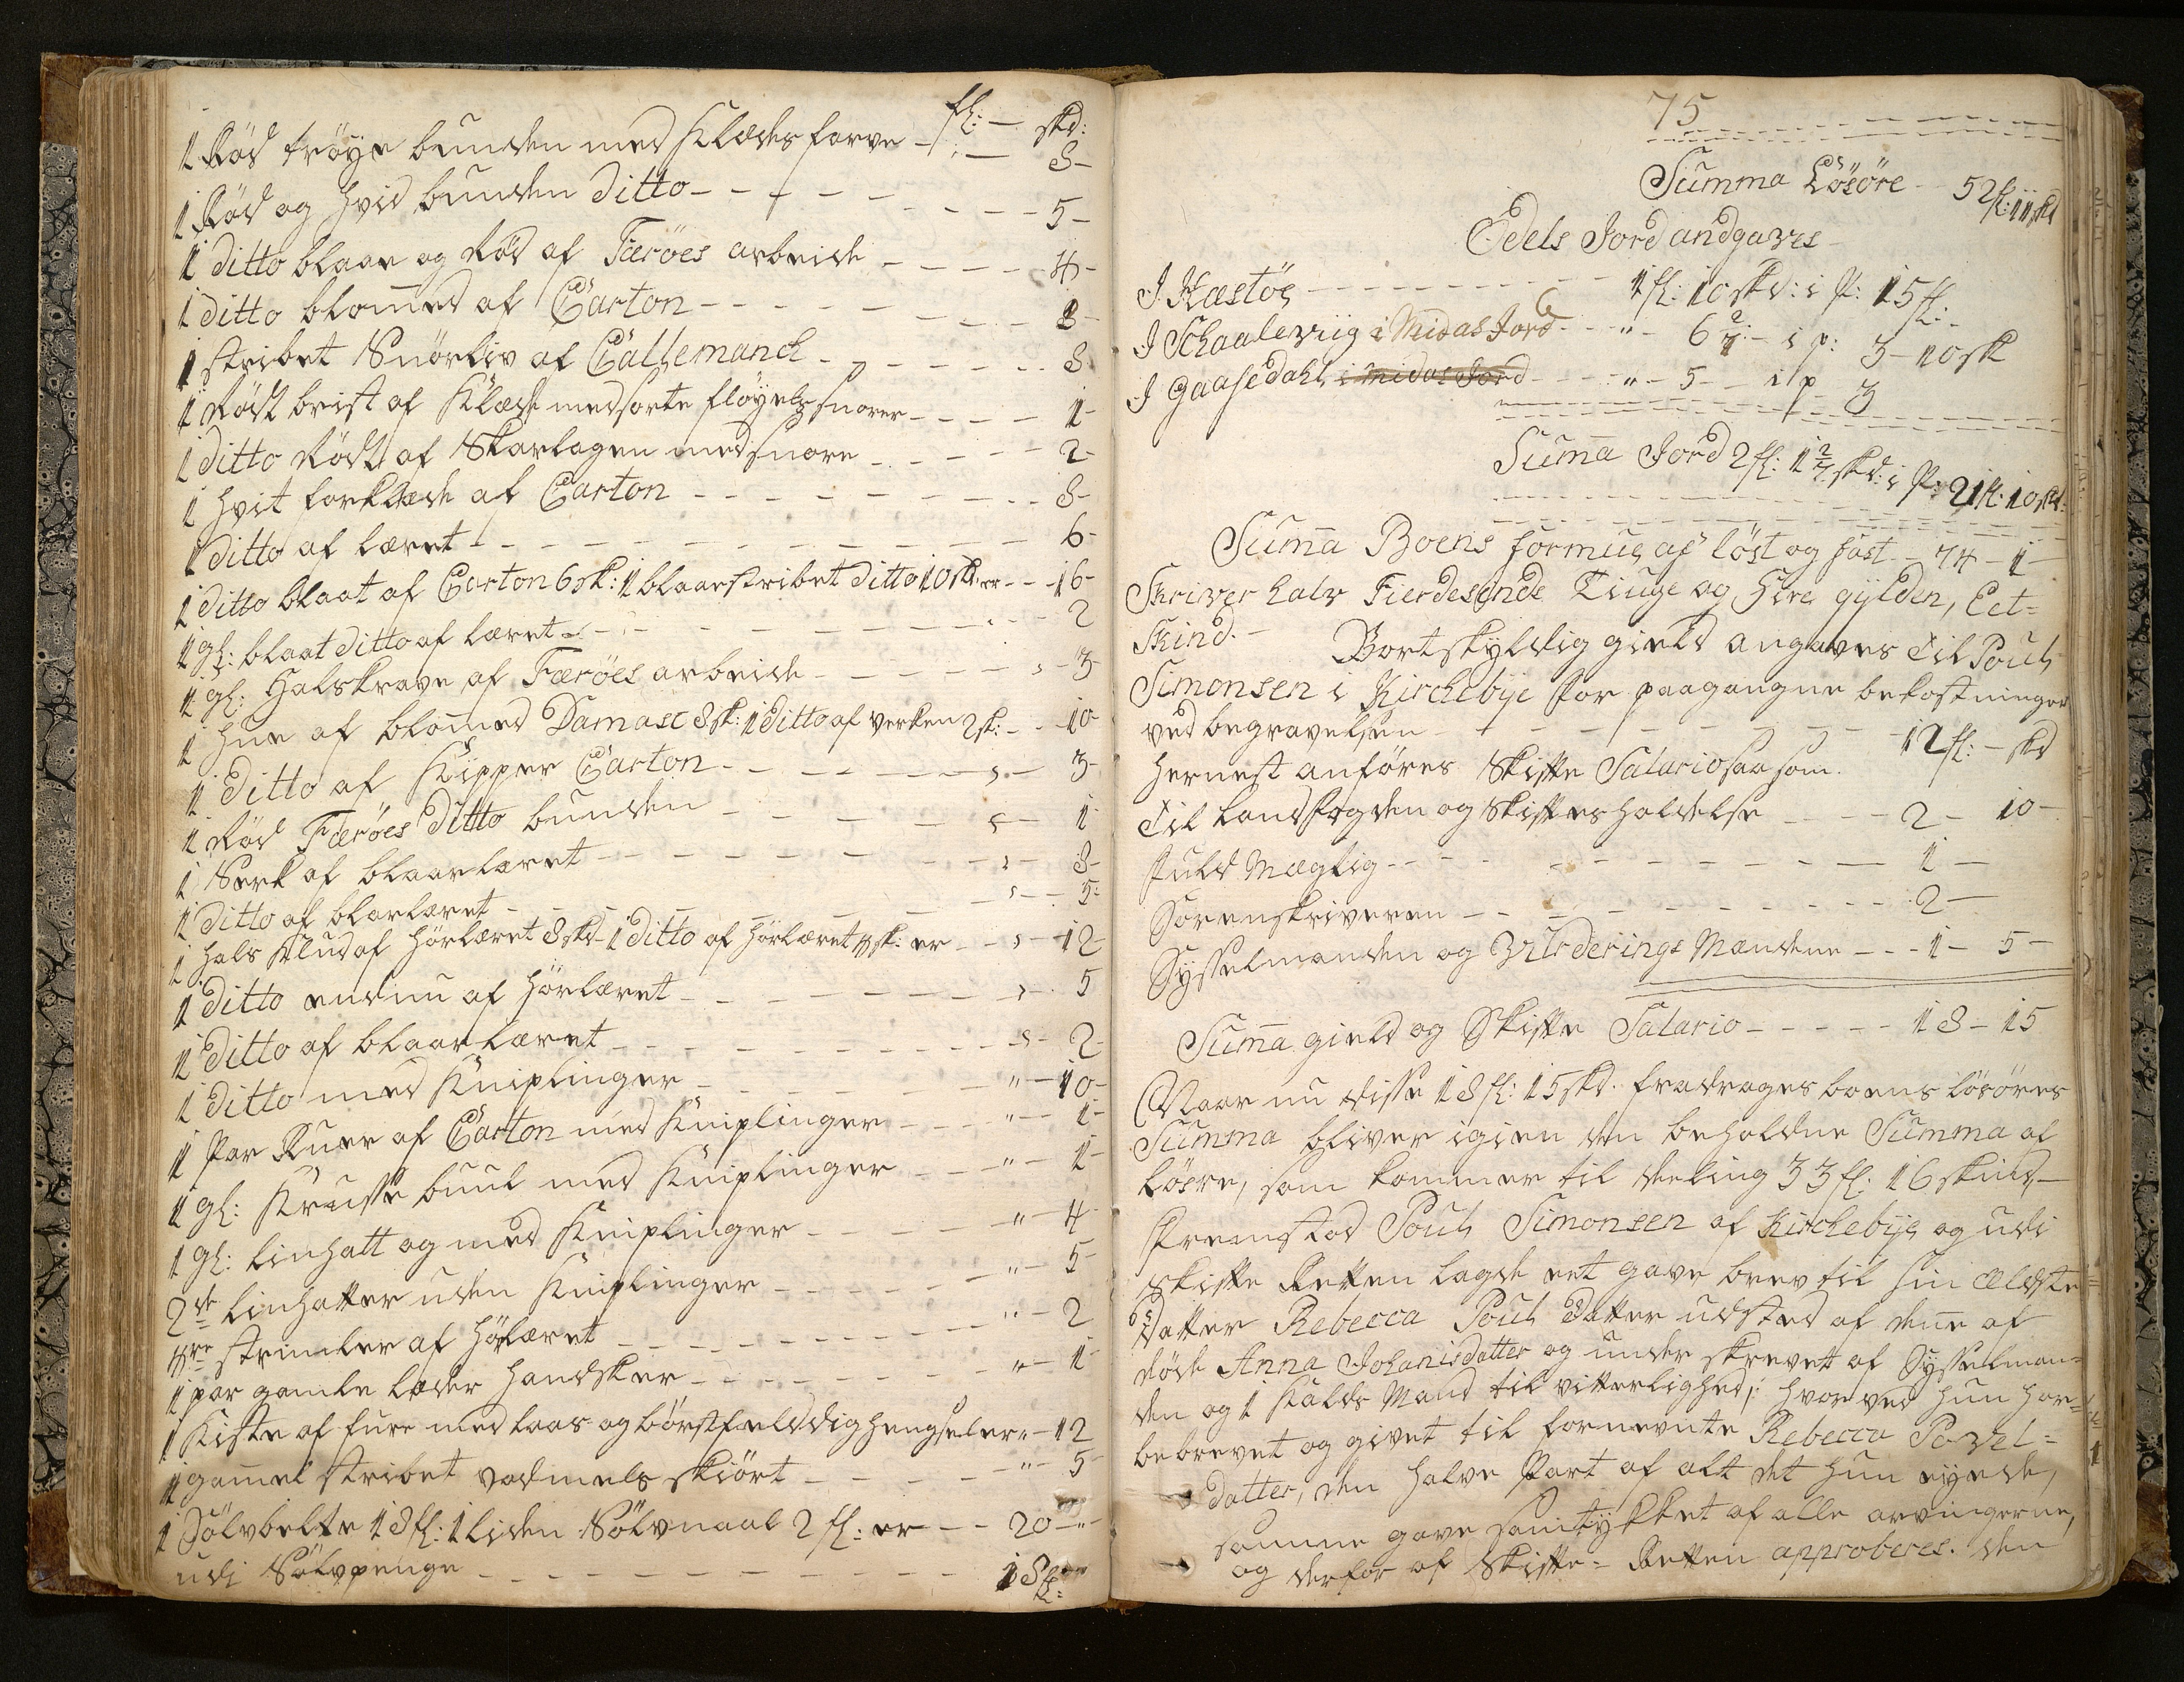 fl: — skd:
1 Rød trøye bunden med Klædes farve - " — 8-
1 Rød og hvid bunden ditto - - - - 5-
1 ditto blaae og Rød af Færöes arbeide - - - - 4-
1 ditto blom̅ed af Carton - - - - 8-
1 stribet Snørliv af Callemanch - - - - 8
1 Rødt brist af Klæde med sorte fløyels snorer - - - - 1-
1 ditto Rødt af Skarlagen med snore - - - - 2-
1 hvit forklæde af Carton - - - - 8-
1 ditto af læret - - - - 6-
1 ditto blaat af Carton 6 sk: 1 blaaestribet ditto 10 sk: er - - 16-
1 gl: blaat ditto af læret - - - - 2
1 gl: Halskrave af Færöes arbeide - - - - 3
1 hue af blom̅ed Damasc 8 sk: 1 ditto af verken 2 sk: - - 10-
1 ditto af Kipper Carton - - - - 3-
1 Rød Færöes ditto bunden - - - - 1-
1 Særk af blaarlæret - - - - 8-
1 ditto af blarlæret - - - - 5-
1 hals Klud af hørlæret 8 skd - 1 ditto af hørlæret 4 sk: er - - 12-
1 ditto endnu af hørlæret - - - - 5
1 ditto af blaarlæret - - - - 2-
1 ditto med Kniplinger - - - - " - 10-
1 Par Ruer af Carton med Kniplinger - - - " - 1-
1 gl: Kruste buul med Kniplinger - - - " - 1-
1 gl: linhatt og med Kniplinger - - - " - 4-
2de linhatter uden Kniplinger - - - " - 5-
4re strimler af hørlæret - - - " - 2
1 par gamle læder handsker - - - " - 1-
1 Kiste af fure med laas og hengseler " - 12
1 gam̅el stribet vadmels skiört - - - " - 5-
1 Sölvbelte 18 fl: 1 liden Sölvnaal 2 fl: er - - 20 - "-
udi Sölvpenge - - - - 18 fl:
75
Summa Lösöre - 52 fl: 11 skd
Odels Jord andgaves
I Næstöe - - - - 1 fl: 10 skd: i P: 15 fl: -
I Schaaleviig i Midas Jord - - " - 6 2/7: - i p: 3 - 10 sk
I Gaasedahl i Midas Jord - - " - 5 - i p 3
Sum̅a Jord 2 fl: 1 2/7 skd: i P: 21 fl: 10 skd:
Sum̅a Boens formue af löst og fast - 74 - 1 -
Skriver halv Fierdesinde Tiuge og Fire gylden, Eet-
Skind. - Bortskyldig gield angaves til Pouls
Simonsen i Kirchebye for paagangne bekostninger
ved begravelsen - - - - 12 fl: - skd
Hernest anføres Skifte Salario saasom.
Til Landfogden og Skiftes holdelse - - - 2 - 10 -
fuld Mægtig - - - - 1 -
Sorenskriveren - - - - 2 -
Sysselmanden og Vurderings Mændene - - - 1 - 5 -
Sum̅a gield og Skifte Salario - - - - 18 - 15
Naar nu disse 18 fl: 15 skd. fradrages boens lösöres
Summa bliver igien den beholdne Summa af
lösöre, som kommer til deeling 33 fl: 16 skind, -
Fremstod Pouls Simonsen af Kirchebye og udi
skifte Retten lagde eet gave brev til sin ældste
Datter Rebecca Pouls Datter udsted af den̅e af
døde Anna Johanisdatter og under skrevet af Sysselman=
den og 1 Kalds Mand til vitterlighed, hvorved hun har=
bebrevet og givet til fornevnte Rebecca Povel=
datter, den halve Part af alt det hun eyede,
samme gave samtykket af alle arvingerne,
og derfor af Skifte= Retten approberes. den